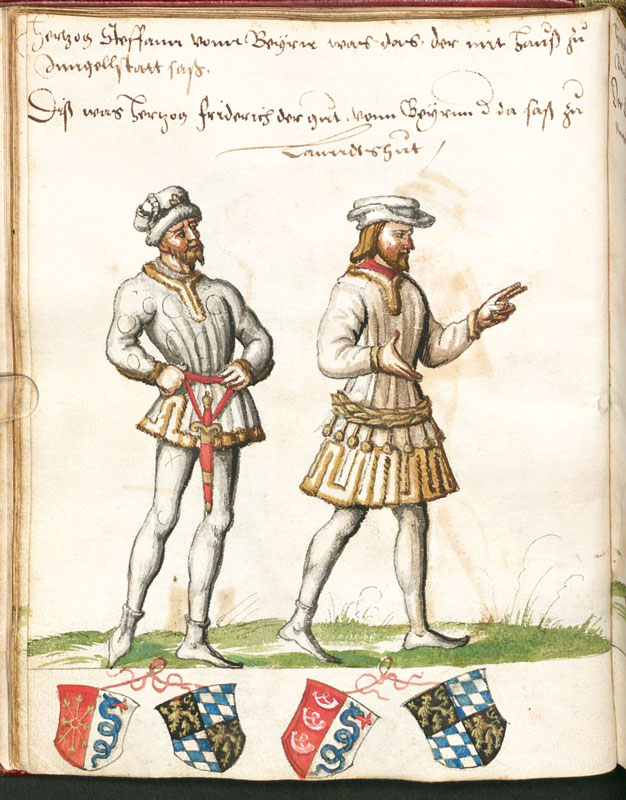 Hertzog Steffann vonn Beyrn was das der mit Hauß zu
Inngellstatt saß.
Diß was Hertzog Friderich der vonn Beyrnn d da saß zu
Lanndtshut